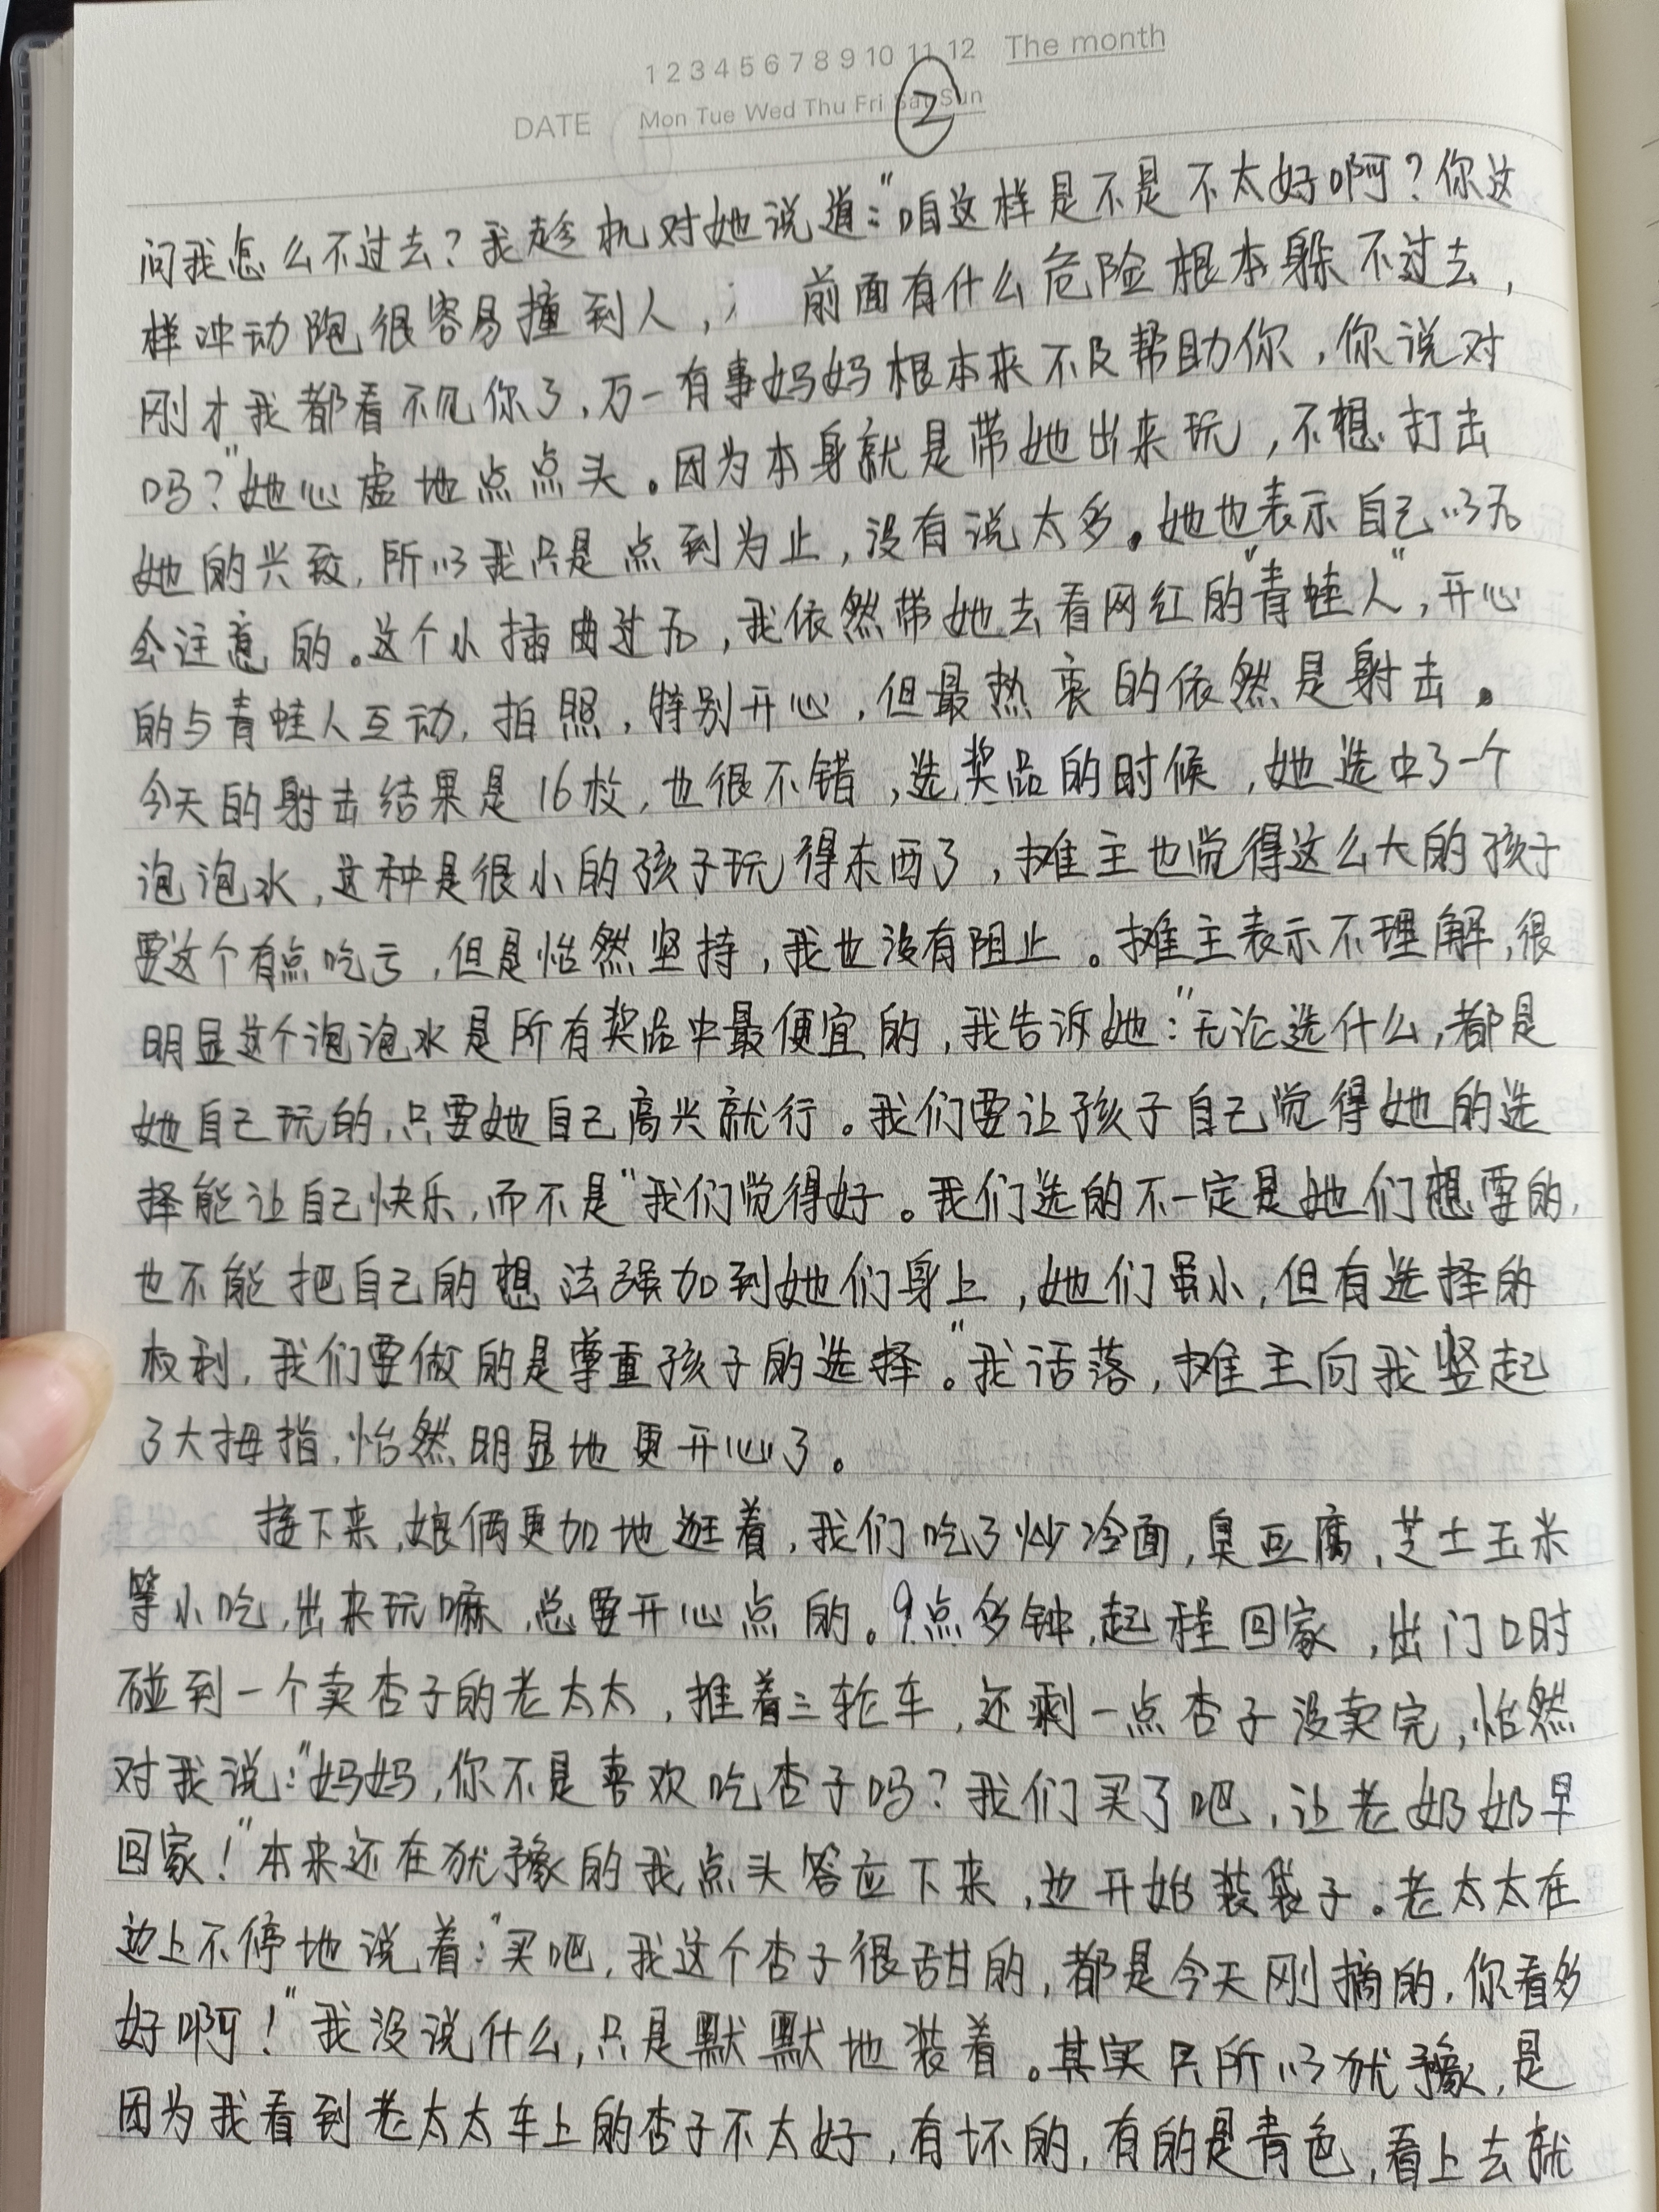 1 2 3 4 5 6 7 8 9 10 11 12 The month
DATE Mon Tue Wed Thu Fri Sat Sun
②
问我怎么不过去？我趁机对她说道：“咱这样是不是不太好啊？你这
样冲动跑很容易撞到人，前面有什么危险根本躲不过去，
刚才我都看不见你了，万一有事妈妈根本来不及帮助你，你说对
吗？”她心虚地点点头。因为本身就是带她出来玩，不想打击
她的兴致，所以我只是点到为止，没有说太多。她也表示自己以后
会注意的。这个小插曲过后，我依然带她去看网红的“青蛙人”，开心
的与青蛙人互动，拍照，特别开心，但最热衷的依然是射击。
今天的射击结果是16枚，也很不错，选奖品的时候，她选中了一个
泡泡水，这种是很小的孩子玩得东西了，摊主也觉得这么大的孩子
要这个有点吃亏，但是怡然坚持，我也没有阻止。摊主表示不理解，很
明显这个泡泡水是所有奖品中最便宜的，我告诉她：“无论选什么，都是
她自己玩的，只要她自己高兴就行。我们要让孩子自己觉得她的选
择能让自己快乐，而不是“我们觉得好。我们选的不一定是她们想要的，
也不能把自己的想法强加到她们身上，她们虽小，但有选择的
权利，我们要做的是尊重孩子的选择。”我话落，摊主向我竖起
了大拇指，怡然明显地更开心了。
接下来，娘俩更加地逛着，我们吃了炒冷面，臭豆腐，芝士玉米
等小吃，出来玩嘛，总要开心点的。9点多钟，起程回家，出门口时
碰到一个卖杏子的老太太，推着三轮车，还剩一点杏子没卖完，怡然
对我说：“妈妈，你不是喜欢吃杏子吗？我们买了吧，让老奶奶早
回家！”本来还在犹豫的我点头答应下来，边开始装袋子。老太太在
边上不停地说着：“买吧，我这个杏子很甜的，都是今天刚摘的，你看多
好啊！”我没说什么，只是默默地装着。其实只所以犹豫，是
因为我看到老太太车上的杏子不太好，有坏的，有的是青色，看上去就